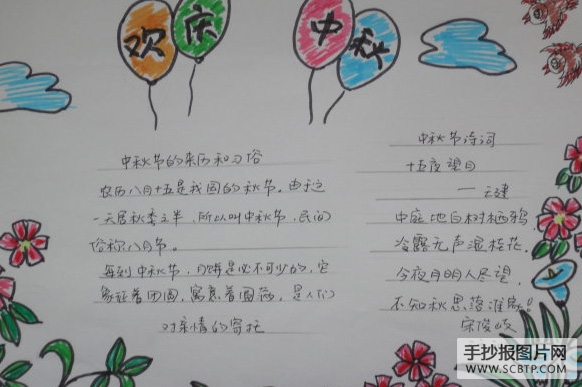 欢庆中秋
中秋节的来历和习俗
农历八月十五是我国的秋节。由于这
一天居秋季之半，所以叫中秋节，民间
俗称八月节。
每到中秋节，月饼是必不可少的，它
象征着团圆，寓意着圆满，是人们
对亲情的寄托
中秋节诗词
十五夜望月
一王建
中庭地白树栖鸦
冷露无声湿桂花，
今夜月明人尽望，
不知秋思落谁家！
宋俊岐
手抄报图片网
WWW.SCBTP.COM